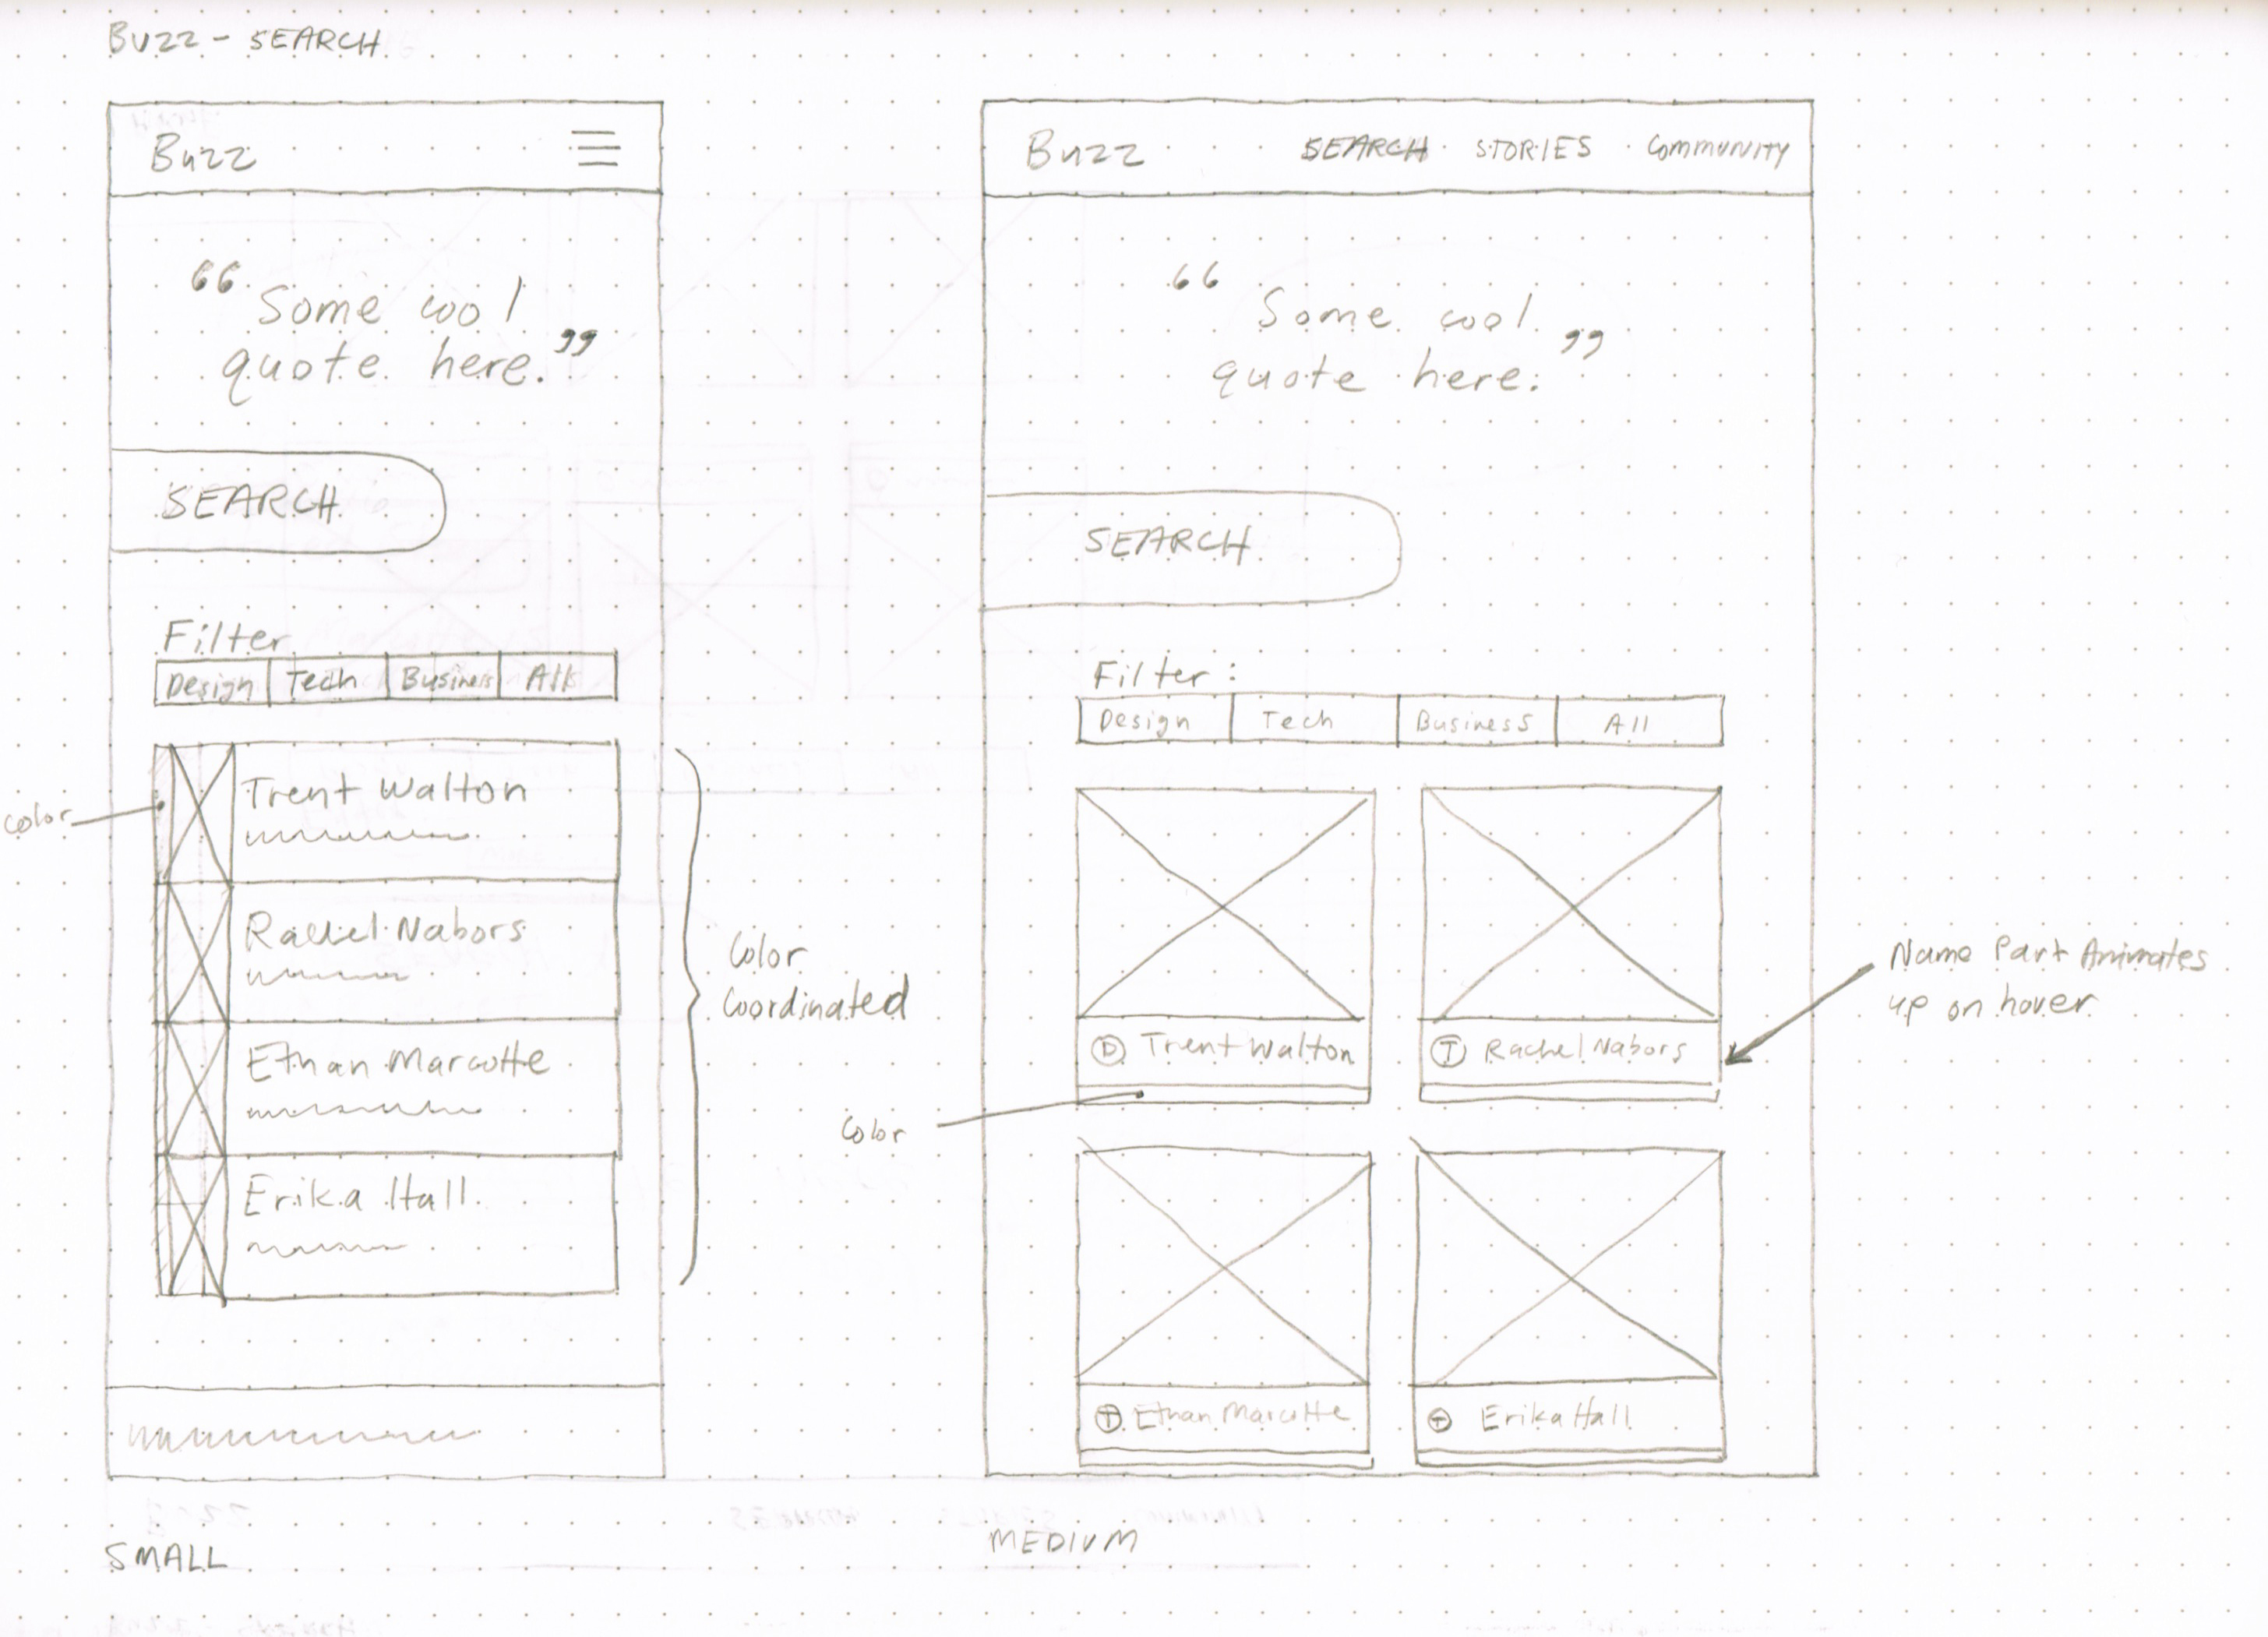 Buzz - SEARCH
Buzz
“ Some cool
quote here. ”
SEARCH
Filter
Design Tech Business All
Trent Walton
Rachel Nabors
Ethan Marcotte
Erika Hall
Color
Color
Coordinated
SMALL
Buzz SEARCH STORIES Community
“ Some cool
quote here. ”
SEARCH
Filter :
Design Tech Business All
D Trent Walton
T Rachel Nabors
Color
Name Part Animates
up on hover
T Ethan Marcotte
Erika Hall
MEDIUM